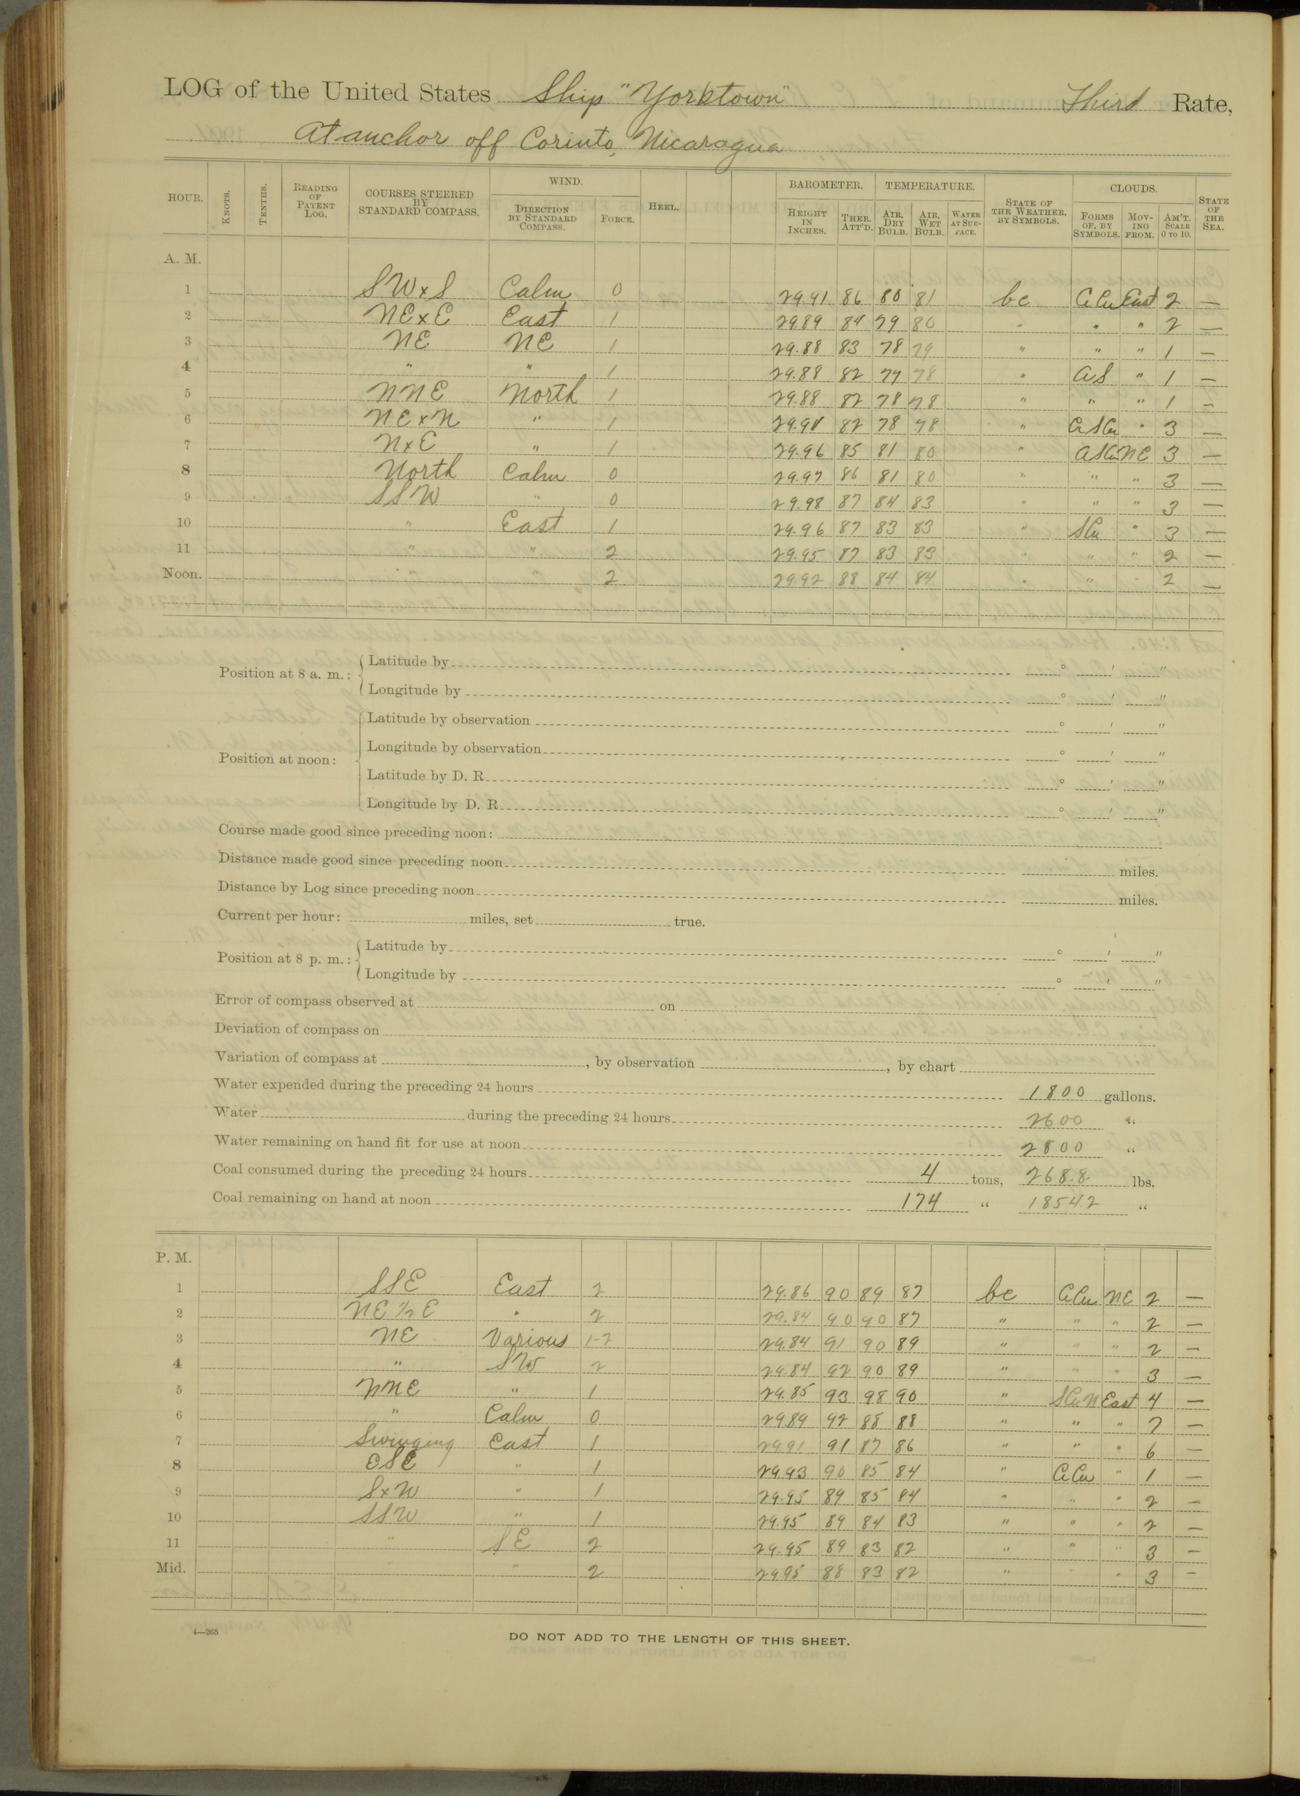 LOG of the United States Ship "Yorktown" Third Rate,
At anchor off Corinto, Nicaragua
HOUR. KNOTS. TENTHS. READING OF PATENT LOG. COURSES STEERED BY STANDARD COMPASS. WIND. DIRECTION BY STANDARD COMPASS. FORCE. HEEL. BAROMETER. HEIGHT IN INCHES. THER. ATT'D. TEMPERATURE. AIR, DRY BULB. AIR, WET BULB. WATER AT SUR-FACE. STATE OF THE WEATHER, BY SYMBOLS. CLOUDS. FORMS OF, BY SYMBOLS. MOV-ING FROM. AM'T. SCALE 0 TO 10. STATE OF THE SEA.
A. M.
1 SWxS Calm 0 29.91 86 80 81 bc CiCu East 2 —
2 NExE East 1 29.89 84 79 80 " " " 2 —
3 NE NE 1 29.88 83 78 79 " " " 1 —
4 " " 1 29.88 82 77 78 " CiS " 1 —
5 NNE North 1 29.88 82 78 78 " " " 1 —
6 NExN " 1 29.91 82 78 78 " CiSCu " 3 —
7 NxE " 1 29.96 85 81 80 " NE 3 —
8 North Calm 0 29.97 86 81 80 " " " 3 —
9 SSW " 0 29.98 87 84 83 " " 3 —
10 " East 1 29.96 87 83 83 " SCu " 3 —
11 " " 2 29.95 87 83 83 " " " 2 —
Noon. " " 2 29.92 88 84 84 " " " 2 —
Position at 8 a. m.: Latitude by ° ' "
Longitude by ° ' "
Position at noon: Latitude by observation ° ' "
Longitude by observation ° ' "
Latitude by D. R. ° ' "
Longitude by D. R. ° ' "
Course made good since preceding noon:
Distance made good since preceding noon miles.
Distance by Log since preceding noon miles.
Current per hour: miles, set true.
Position at 8 p. m.: Latitude by ° ' "
Longitude by ° ' "
Error of compass observed at on
Deviation of compass on
Variation of compass at , by observation , by chart
Water expended during the preceding 24 hours 1800 gallons.
Water during the preceding 24 hours 2600 "
Water remaining on hand fit for use at noon 2800 "
Coal consumed during the preceding 24 hours 4 tons, 268.8 lbs.
Coal remaining on hand at noon 174 " 1854.2 "
P. M.
1 SSE East 2 29.86 90 89 87 bc CiCu NE 2 —
2 NE ½ E " 2 29.84 90 90 87 " " " 2 —
3 NE Various 1-2 29.84 91 90 89 " " " 2 —
4 " SW 2 29.84 92 90 89 " " " 3 —
5 NNE " 1 29.85 93 98 90 " SCuN East 4 —
6 " Calm 0 29.89 92 88 88 " " " 7 —
7 Swinging East 1 29.91 91 87 86 " " " 6 —
8 ESE " 1 29.93 90 85 84 " CiCu " 1 —
9 SxW " 1 29.95 89 85 84 " " " 2 —
10 SSW " 1 29.95 89 84 83 " " " 2 —
11 " SE 2 29.95 89 83 82 " " " 3 —
Mid. " 2 29.95 88 83 82 " " 3 —
4—265
DO NOT ADD TO THE LENGTH OF THIS SHEET.